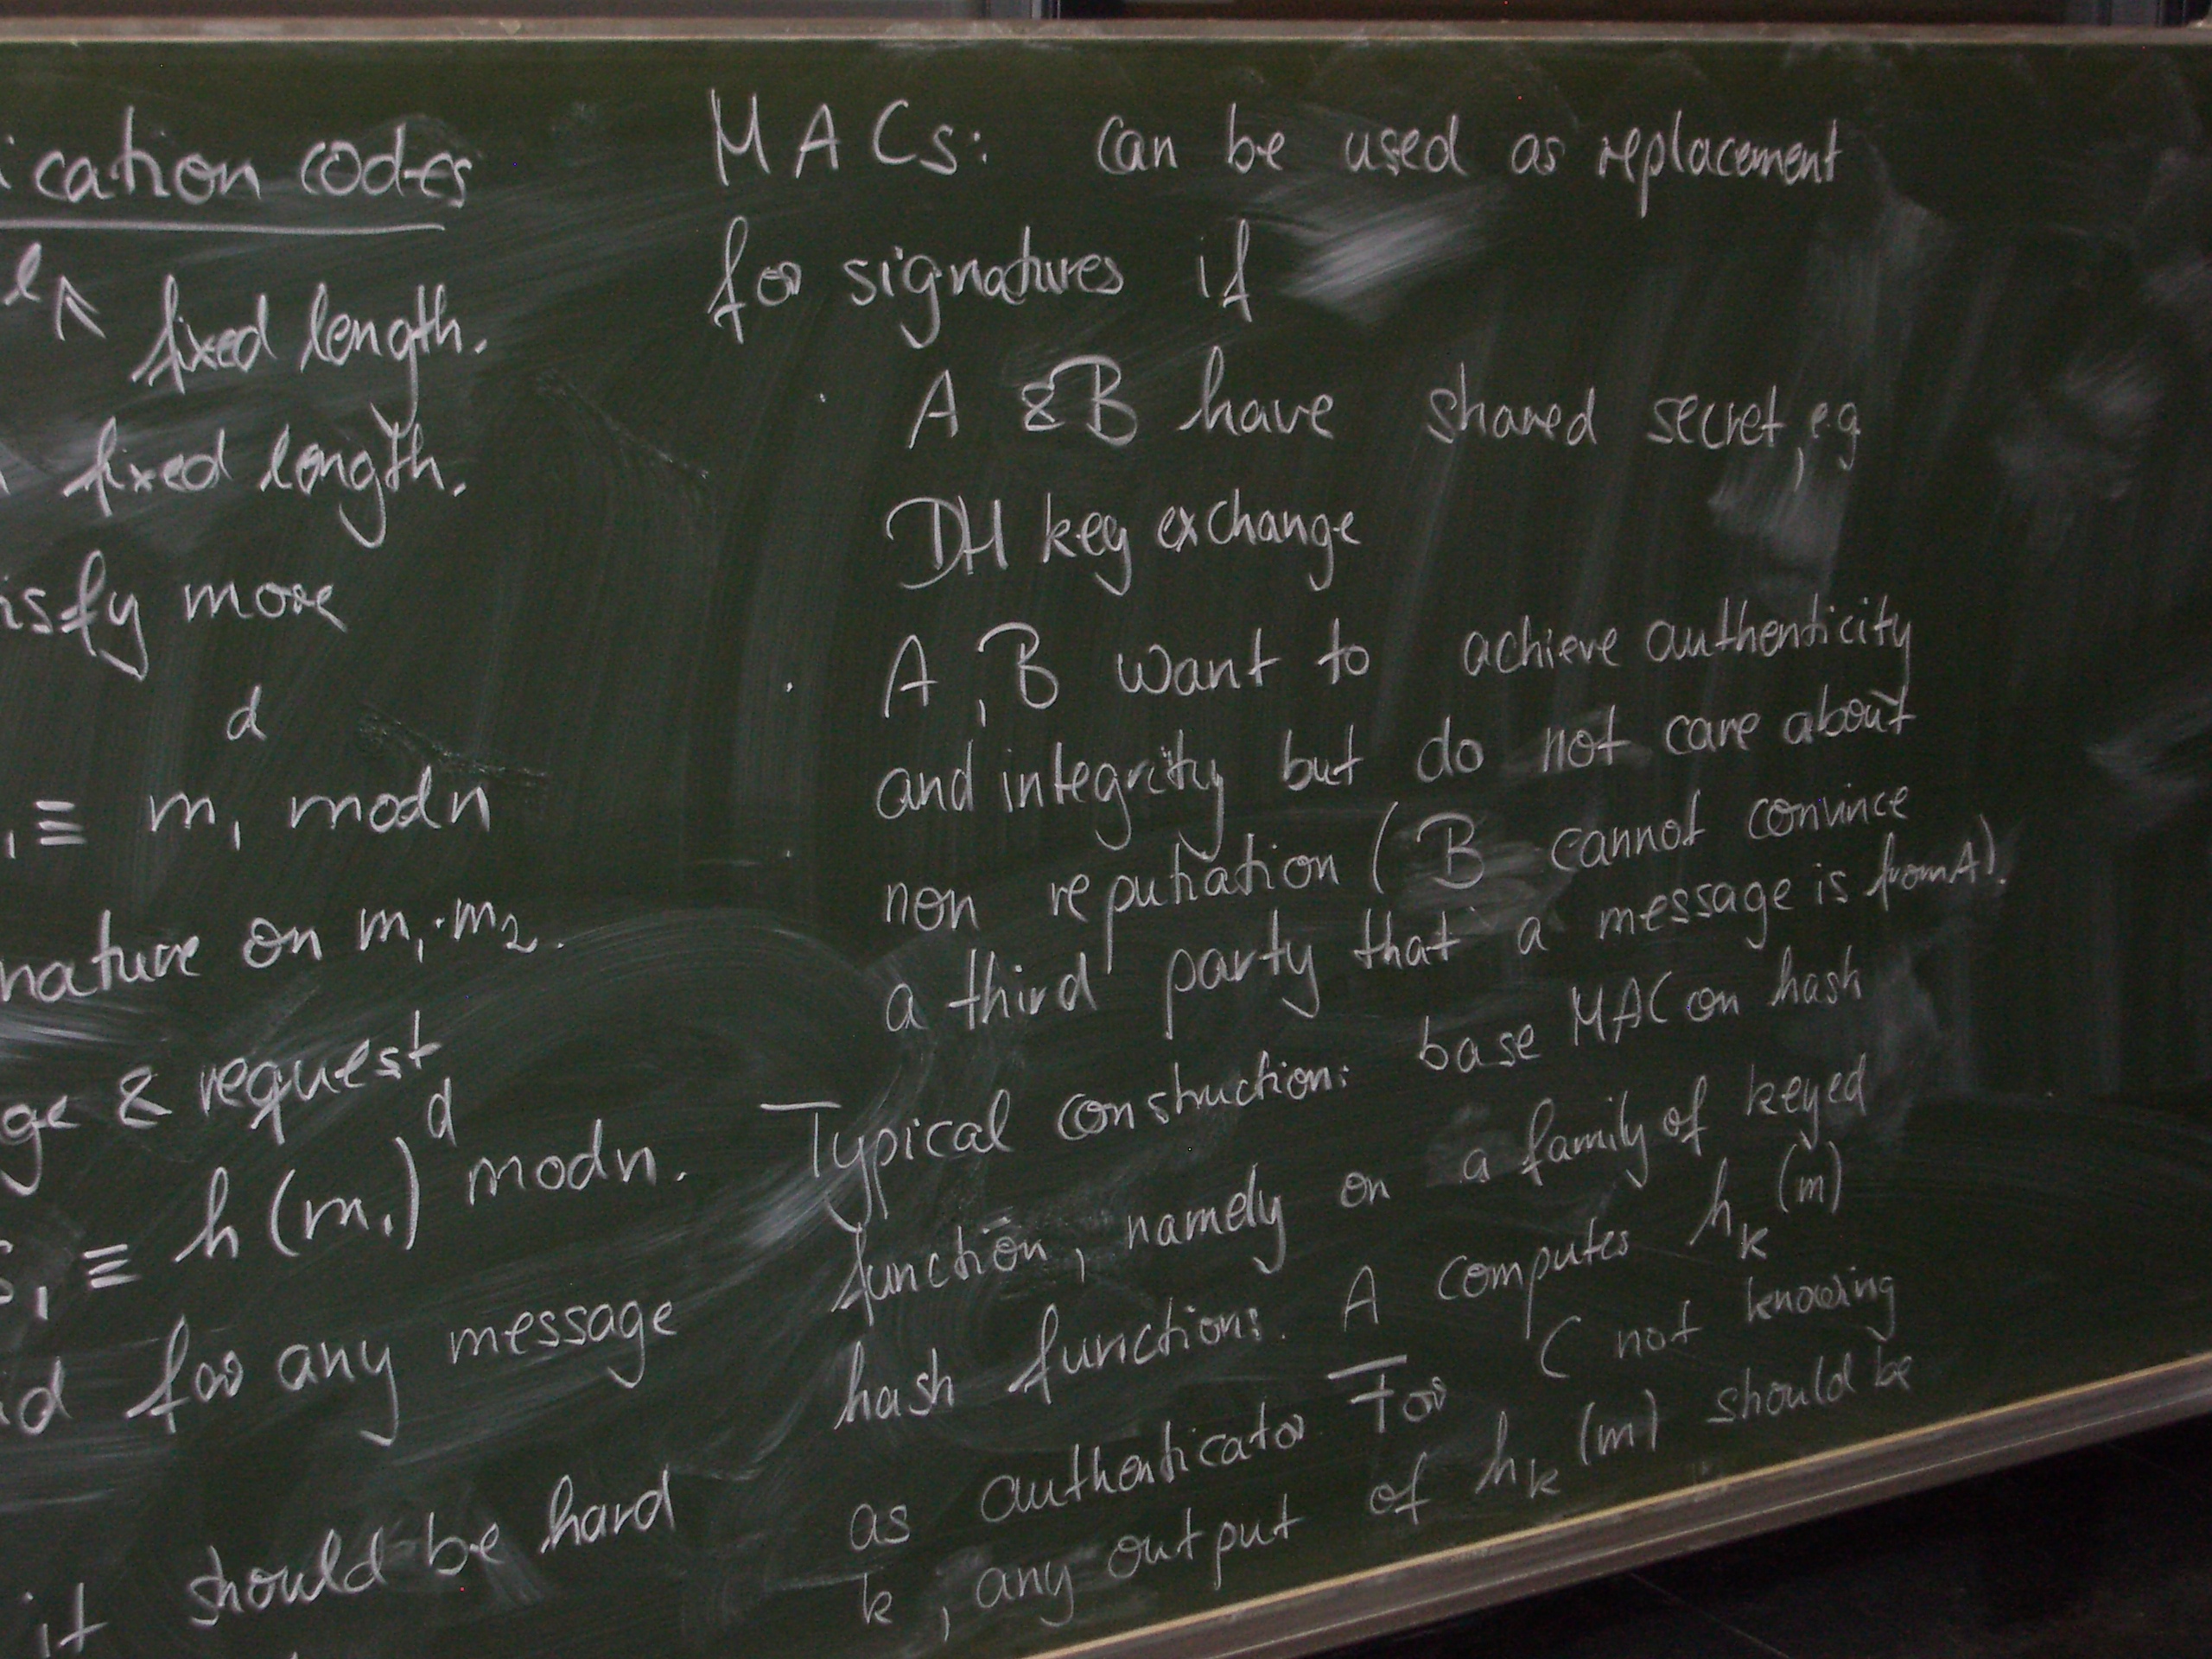 ication codes
l fixed length.
fixed length.
isfy more
d
1 ≡ m1 mod n
nature on m1·m2.
ge & request
s1 ≡ h(m1)^d mod n.
id for any message
it should be hard
MACs: can be used as replacement
for signatures if
· A & B have shared secret, e.g
DH key exchange
· A, B want to achieve authenticity
and integrity but do not care about
non reputiation (B cannot convince
a third party that a message is from A).
Typical construction: base MAC on hash
function, namely on a family of keyed
hash functions. A computes h_k(m)
as authenticator. For C not knowing
k, any output of h_k(m) should be